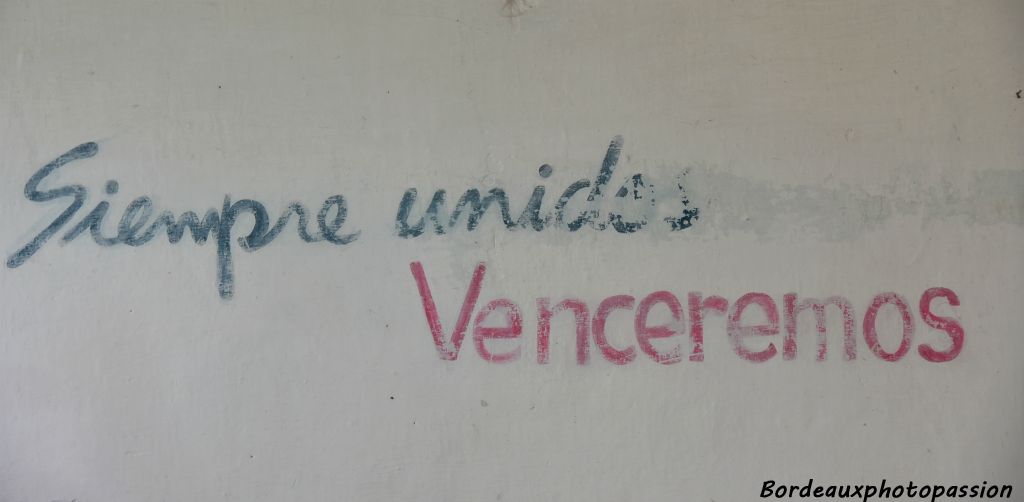 Siempre unidos
Venceremos
Bordeauxphotopassion